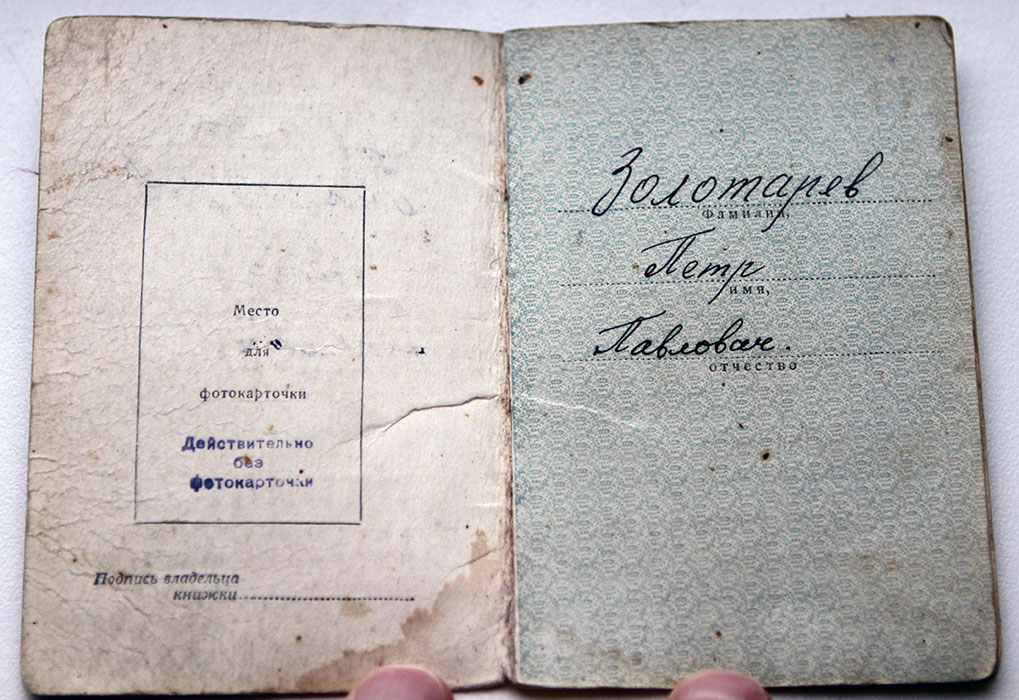 Место
для
фотокарточки
Действительно
без
фотокарточки
Подпись владельца
книжки
Золотарев
фамилия,
Петр
имя,
Павлович.
отчество